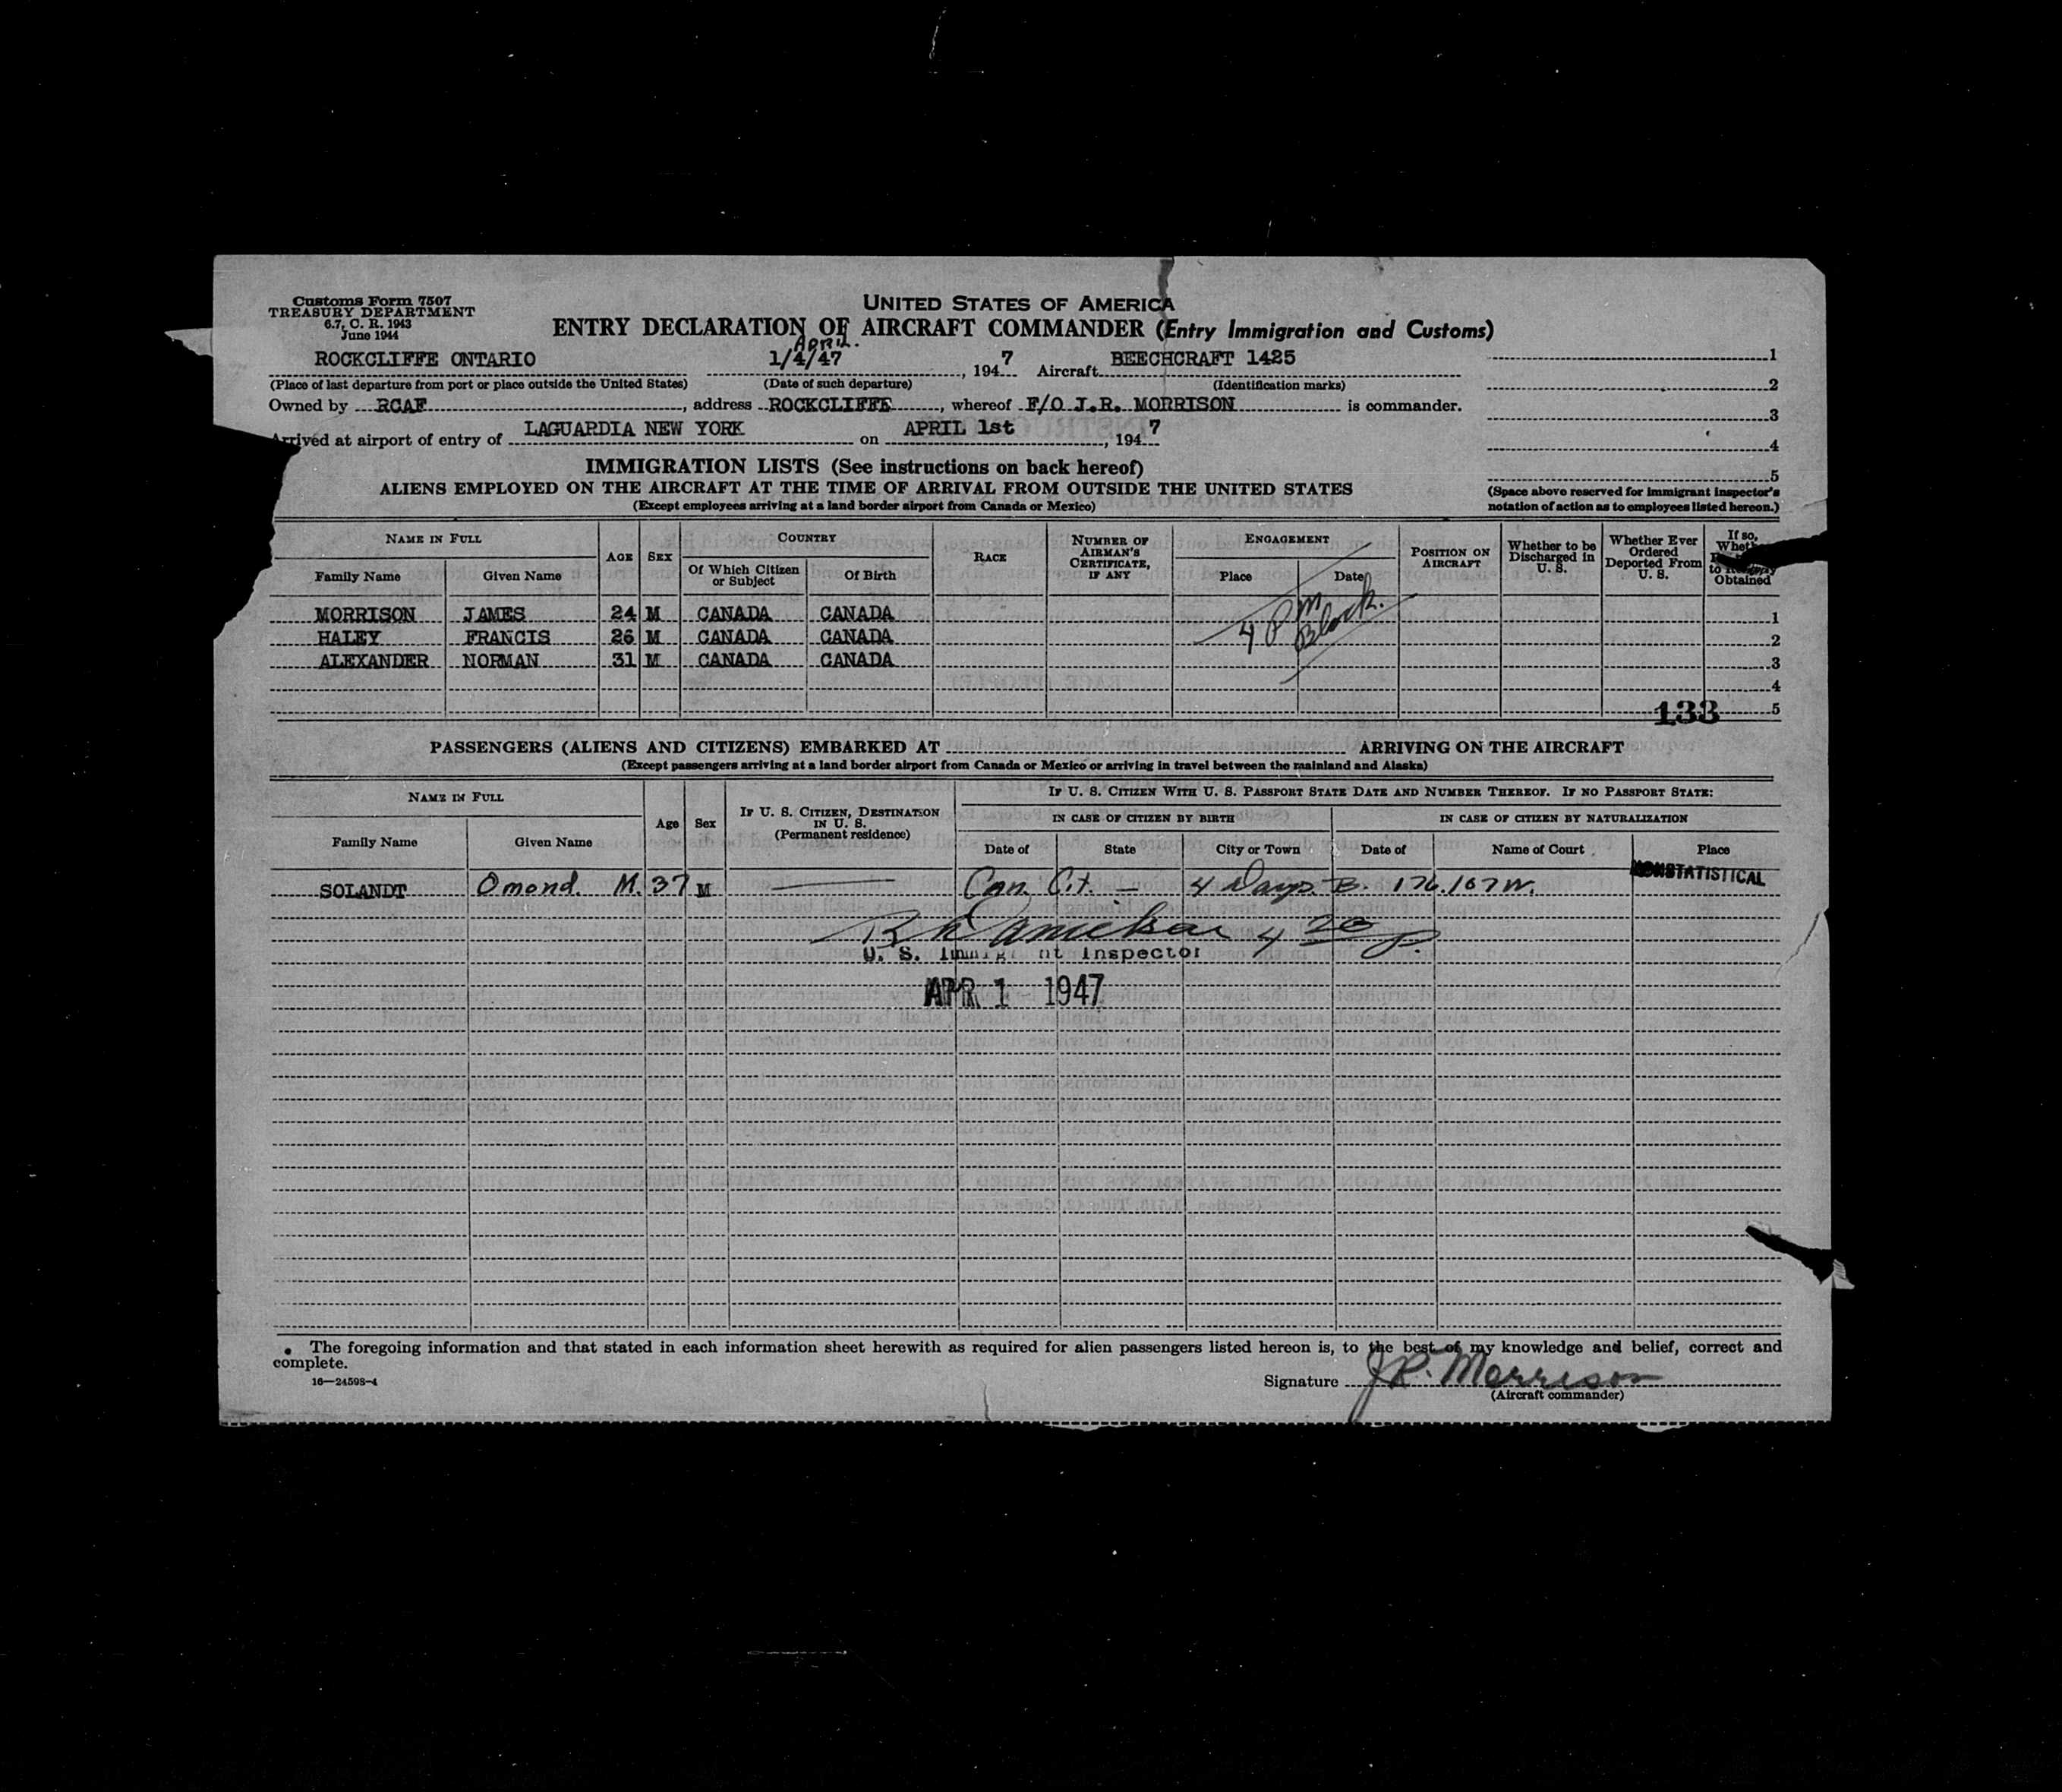 Customs Form 7507
TREASURY DEPARTMENT
6.7, C. R. 1943
June 1944
UNITED STATES OF AMERICA
ENTRY DECLARATION OF AIRCRAFT COMMANDER (Entry Immigration and Customs)
APRIL.
ROCKCLIFFE ONTARIO 1/4/47, 1947 Aircraft BEECHCRAFT 1425
(Place of last departure from port or place outside the United States) (Date of such departure) (Identification marks)
Owned by RCAF, address ROCKCLIFFE, whereof F/O J.R. MORRISON is commander.
Arrived at airport of entry of LAGUARDIA NEW YORK on APRIL 1st, 1947
1
2
3
4
5
(Space above reserved for immigrant inspector's notation of action as to employees listed hereon.)
IMMIGRATION LISTS (See instructions on back hereof)
ALIENS EMPLOYED ON THE AIRCRAFT AT THE TIME OF ARRIVAL FROM OUTSIDE THE UNITED STATES
(Except employees arriving at a land border airport from Canada or Mexico)
NAME IN FULL AGE SEX COUNTRY RACE NUMBER OF AIRMAN'S CERTIFICATE, IF ANY ENGAGEMENT POSITION ON AIRCRAFT Whether to be Discharged in U. S. Whether Ever Ordered Deported From U. S. If so, Obtained
Family Name Given Name Of Which Citizen or Subject Of Birth Place Date
MORRISON JAMES 24 M CANADA CANADA 1
HALEY FRANCIS 26 M CANADA CANADA 4 PM Block. 2
ALEXANDER NORMAN 31 M CANADA CANADA 3
4
133 5
PASSENGERS (ALIENS AND CITIZENS) EMBARKED AT ARRIVING ON THE AIRCRAFT
(Except passengers arriving at a land border airport from Canada or Mexico or arriving in travel between the mainland and Alaska)
NAME IN FULL Age Sex IF U. S. CITIZEN, DESTINATION IN U. S. (Permanent residence) IF U. S. CITIZEN WITH U. S. PASSPORT STATE DATE AND NUMBER THEREOF. IF NO PASSPORT STATE:
IN CASE OF CITIZEN BY BIRTH IN CASE OF CITIZEN BY NATURALIZATION
Family Name Given Name Date of State City or Town Date of Name of Court Place
NONSTATISTICAL
SOLANDT Omond. M. 37 M — Can. Cit. — 4 Days. B. 176.107 W.
4 20 P.
U. S. Immigrant Inspector
APR 1 1947
The foregoing information and that stated in each information sheet herewith as required for alien passengers listed hereon is, to the best of my knowledge and belief, correct and
complete.
16—24598-4
Signature J.R. Morrison
(Aircraft commander)